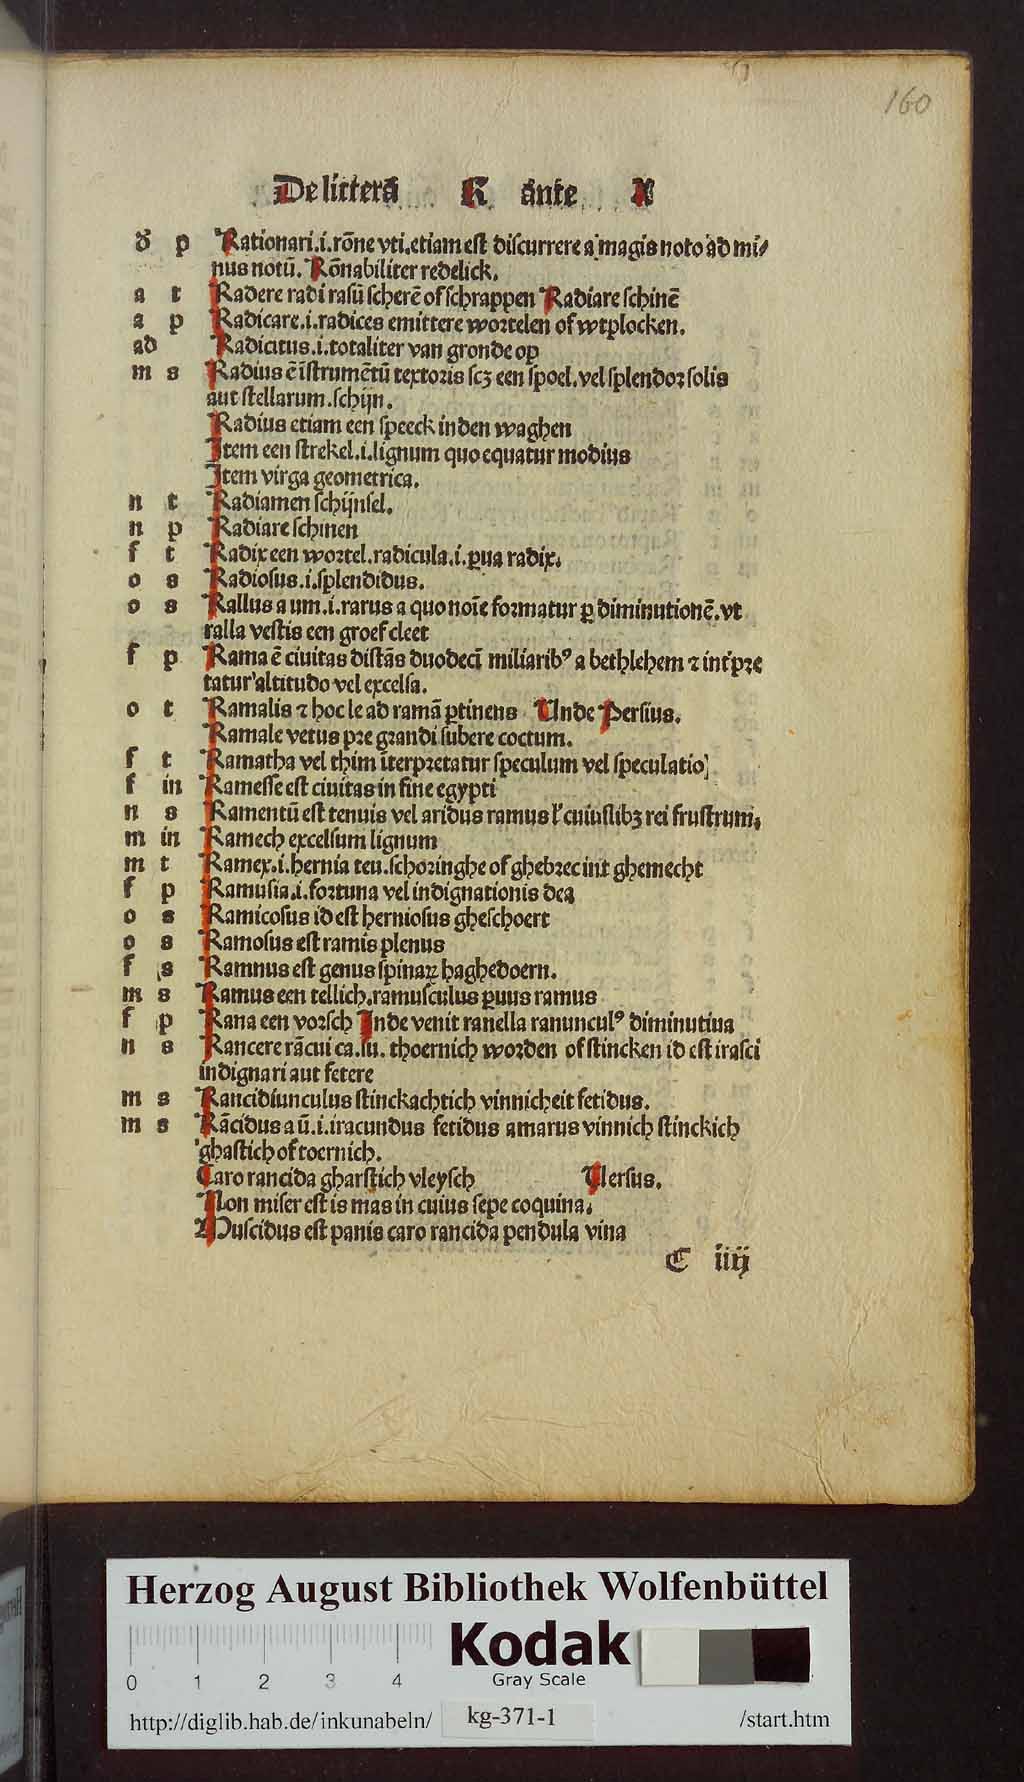 160
De litterā R ante A
ꝺ p Rationari.i.rōne vti.etiam est discurrere a magis noto ad mi⸗
nus notū. Rōnabiliter redelick.
a t Radere radi rasū scherē of schrappen Radiare schinē
a p Radicare.i.radices emittere wortelen of wtplocken.
ad Radicitus.i.totaliter van gronde op
m s Radius ē īstrumētū textoris scꝫ een spoel.vel splendor solis
aut stellarum.schijn.
Radius etiam een speeck inden waghen
Item een strekel.i.lignum quo equatur modius
Item virga geometrica.
n t Radiamen schijnsel.
n p Radiare schinen
f t Radix een wortel.radicula.i.ꝑua radix.
o s Radiosus.i.splendidus.
o s Rallus a um.i.rarus a quo noīe formatur ꝑ diminutionē.vt
ralla vestis een groef cleet
f p Rama ē ciuitas distās duodecī miliaribꝰ a bethlehem ⁊ int'pre
tatur altitudo vel excelsa.
o t Ramalis ⁊ hoc le ad ramā ꝑtinens Unde Persius.
Ramale vetus pre grandi subere coctum.
f t Ramatha vel thim īterpretatur speculum vel speculatio
f in Ramesse est ciuitas in fine egypti
n s Ramentū est tenuis vel aridus ramus l' cuiuslibꝫ rei frustrum.
m in Ramech excelsum lignum
m t Ramex.i.hernia teu.schoringhe of ghebrec int ghemecht
f p Ramusia.i.fortuna vel indignationis dea
o s Ramicosus id est herniosus gheschoert
o s Ramosus est ramis plenus
f s Ramnus est genus spinaꝝ haghedoern.
m s Ramus een tellich.ramusculus ꝑuus ramus
f p Rana een vorsch Inde venit ranella ranunculꝰ diminutiua
n s Rancere rācui ca.su. thoernich worden of stincken id est irasci
indignari aut fetere
m s Rancidiunculus stinckachtich vinnicheit fetidus.
m s Rācidus a ū.i.iracundus fetidus amarus vinnich stinckich
ghastich of toernich.
Caro rancida gharstich vleysch Uersus.
Non miser est is mas in cuius sepe coquina.
Muscidus est panis caro rancida pendula vina
C iiij
Herzog August Bibliothek Wolfenbüttel
Kodak
Gray Scale
0 1 2 3 4
http://diglib.hab.de/inkunabeln/ kg-371-1 /start.htm